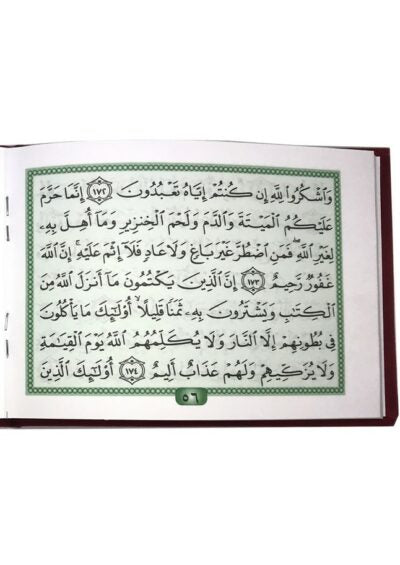 وَٱشْكُرُوا۟ لِلَّهِ إِن كُنتُمْ إِيَّاهُ تَعْبُدُونَ ١٧٢ إِنَّمَا حَرَّمَ
عَلَيْكُمُ ٱلْمَيْتَةَ وَٱلدَّمَ وَلَحْمَ ٱلْخِنزِيرِ وَمَآ أُهِلَّ بِهِۦ
لِغَيْرِ ٱللَّهِ ۖ فَمَنِ ٱضْطُرَّ غَيْرَ بَاغٍ وَلَا عَادٍ فَلَآ إِثْمَ عَلَيْهِ ۚ إِنَّ ٱللَّهَ
غَفُورٌ رَّحِيمٌ ١٧٣ إِنَّ ٱلَّذِينَ يَكْتُمُونَ مَآ أَنزَلَ ٱللَّهُ مِنَ
ٱلْكِتَٰبِ وَيَشْتَرُونَ بِهِۦ ثَمَنًا قَلِيلًا ۙ أُو۟لَٰٓئِكَ مَا يَأْكُلُونَ
فِى بُطُونِهِمْ إِلَّا ٱلنَّارَ وَلَا يُكَلِّمُهُمُ ٱللَّهُ يَوْمَ ٱلْقِيَٰمَةِ
وَلَا يُزَكِّيهِمْ وَلَهُمْ عَذَابٌ أَلِيمٌ ١٧٤ أُو۟لَٰٓئِكَ ٱلَّذِينَ
٥٦